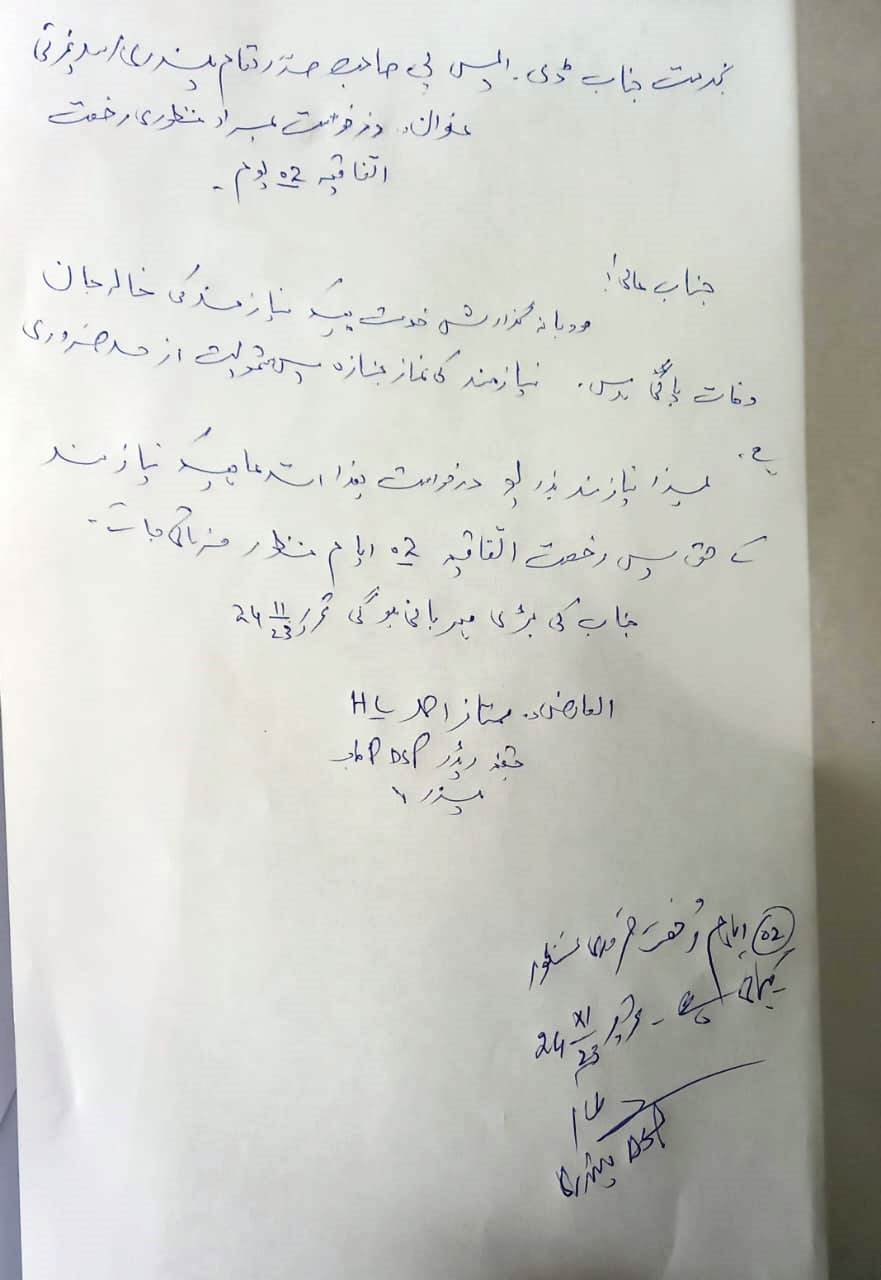 بخدمت جناب ڈی۔ ایس پی صاحب صدر مقام پلندری
عنوان۔ درخواست بمراد منظوری رخصت
اتفاقیہ 02 یوم۔
جناب عالی!
مودبانہ گزارش خدمت ہیکہ نیازمند کی خالہ جان
وفات پا گئی ہیں۔ نیازمند کی نماز جنازہ میں شمولیت از حد ضروری
ہے۔
لہذا نیازمند بذریعہ درخواست ہذا استدعا ہیکہ نیازمند
کے حق میں رخصت اتفاقیہ 02 ایام منظور فرمائی جائے۔
جناب کی بڑی مہربانی ہو گی تحریر 24/11/23
العارض۔ ممتاز احمد HC
ریڈر DSP
02 ایام رخصت منظور
کی جاتی ہے۔ تحریر 24/XI/23
DSP پلندری